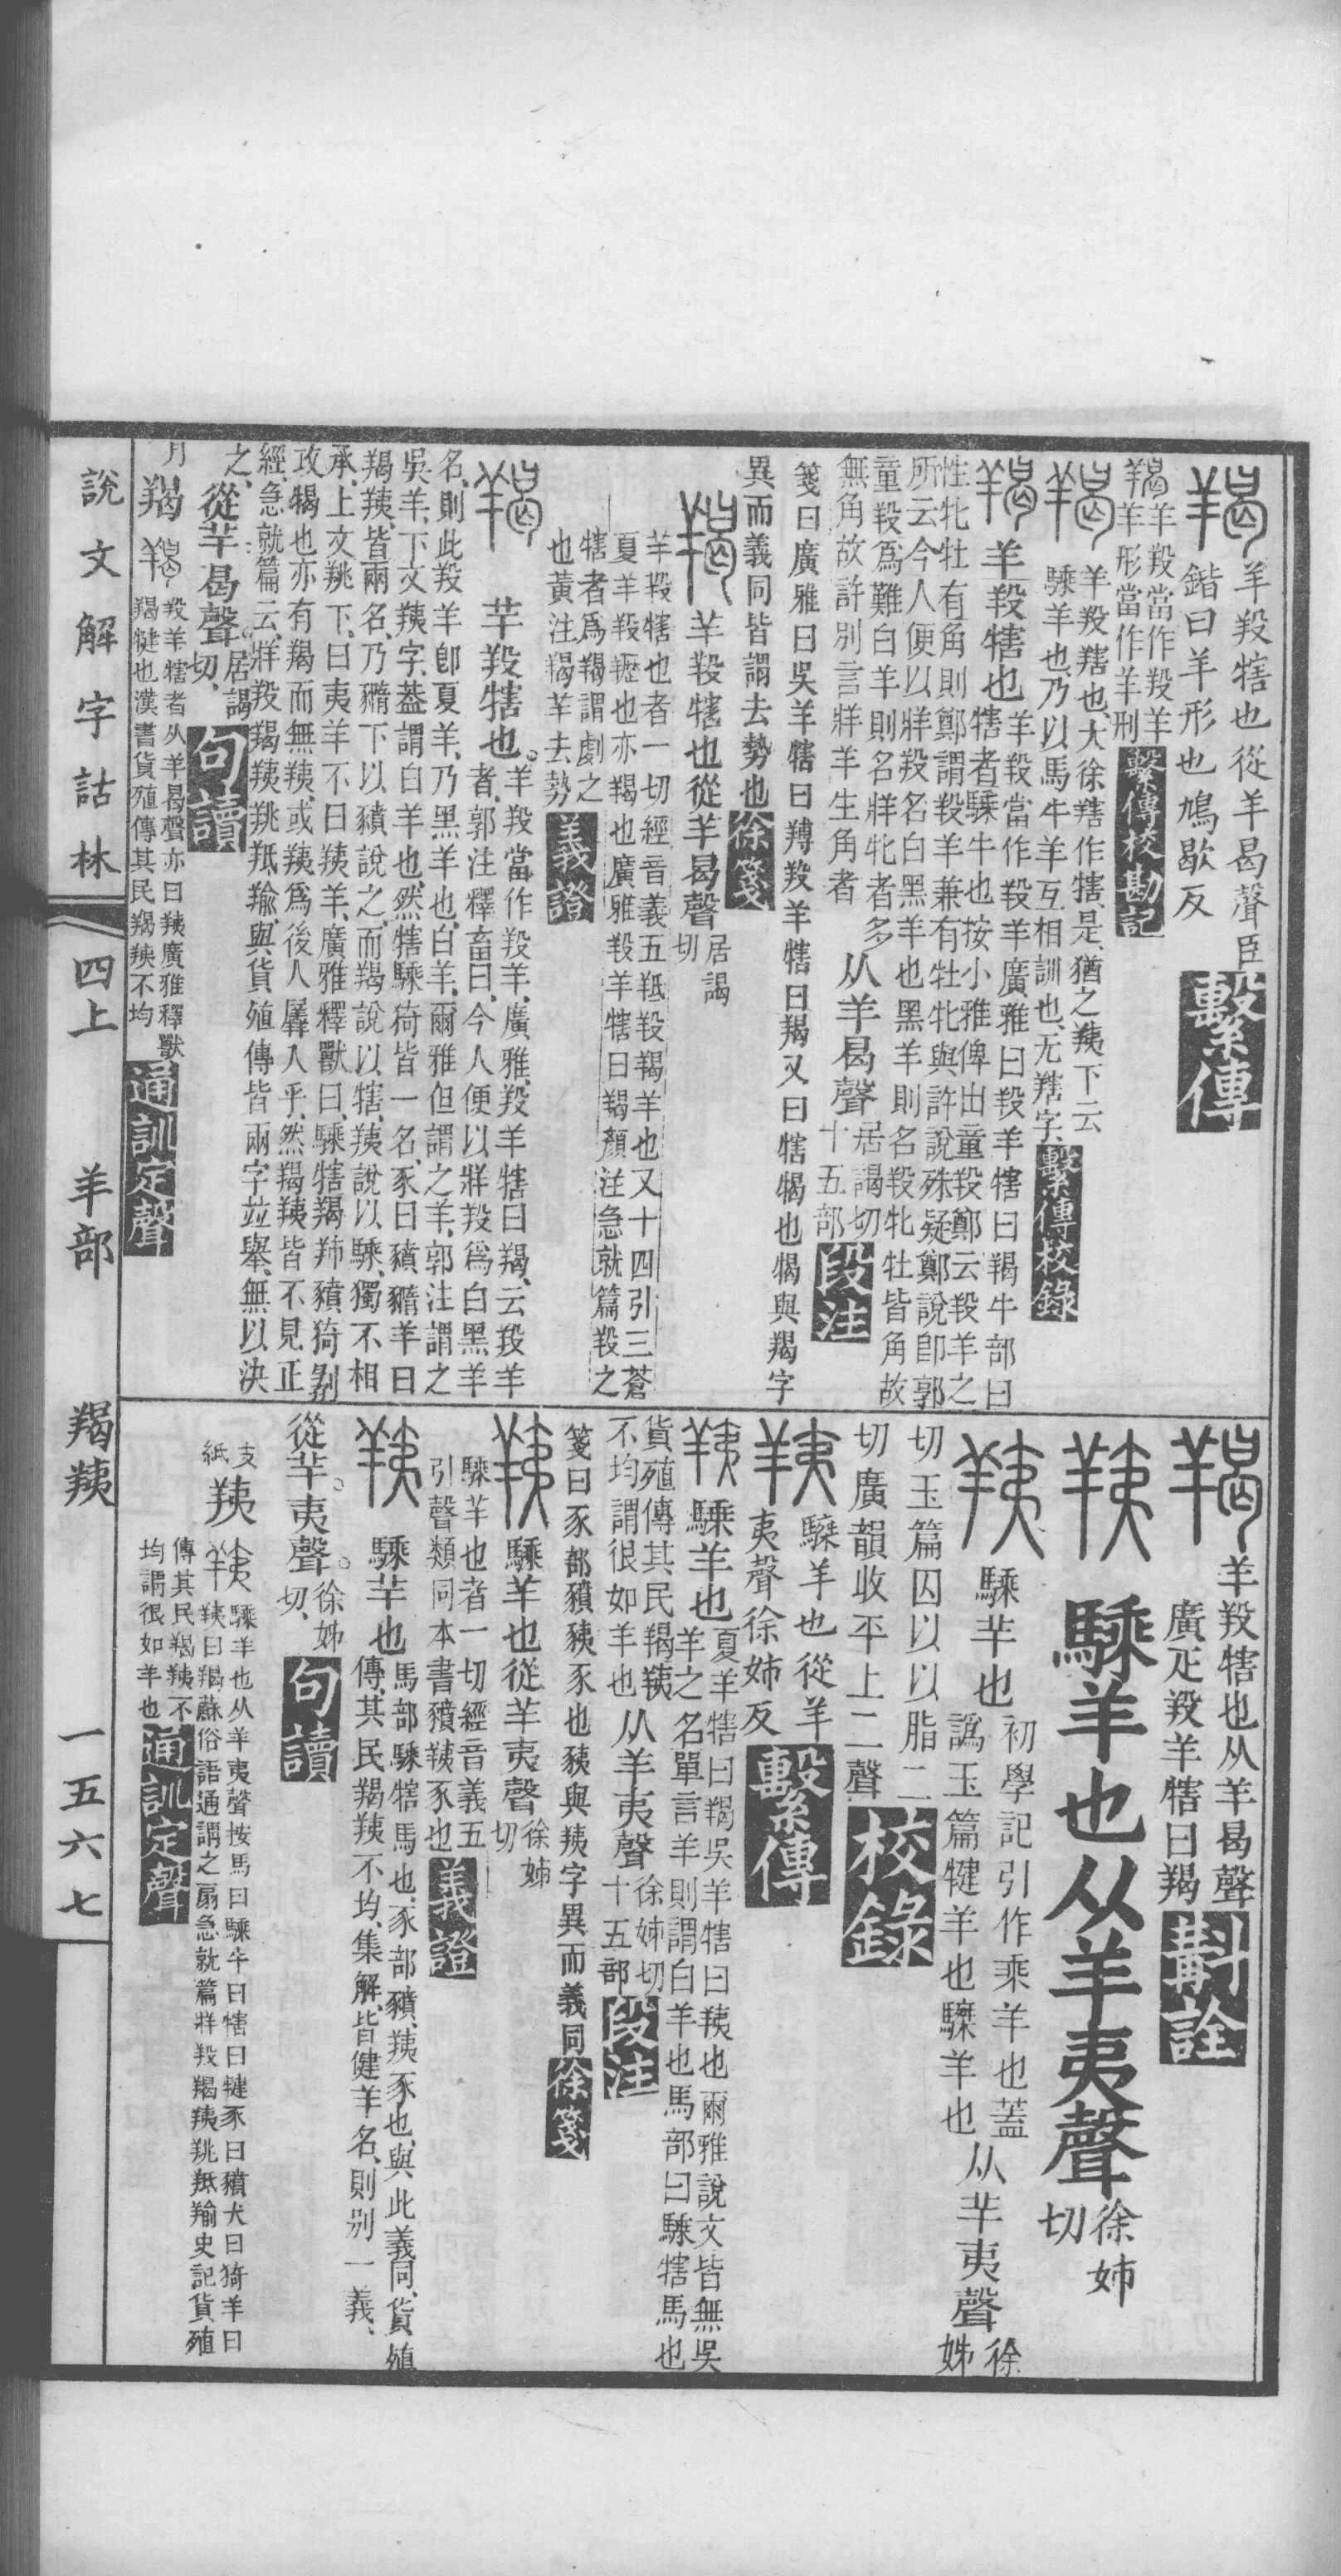 羊羖犗也從羊曷聲臣
鍇曰羊形也鳩歇反
繫傳
羊羖當作羖羊
羊形當作羊刑
繫傳校勘記
羊羖𦎣也、大徐𦎣作犗、是、猶之羠下云
騬羊也、乃以馬牛羊互相訓也、无𦎣字、
繫傳校錄
羊羖犗也
羊羖當作羖羊廣雅曰羖羊犗曰羯牛部曰
犗者騬牛也按小雅俾出童羖鄭云羖羊之
性牝牡有角則鄭謂羖羊兼有牡牝與許說殊疑鄭說卽郭
所云今人便以牂羖名白黑羊也黑羊則名羖牝牡皆角故
童羖爲難白羊則名牂牝者多
無角故許別言牂羊生角者
从羊曷聲
居謁切
十五部
段注
箋曰廣雅曰吳羊犗曰羳羖羊犗曰羯又曰犗犗也犗與羯字
異而義同皆謂去勢也
徐箋
羊羖犗也從羊曷聲
居謁
切
羊羖犗也者一切經音義五羝羖羯羊也又十四引三蒼
夏羊羖䍽也亦羯也廣雅羖羊犗曰羯顏注急就篇羖之
犗者爲羯謂劇之
也黃注羯羊去勢
義證
羊羖犗也。
羊羖當作羖羊、廣雅、羖羊犗曰羯、云羖羊
者、郭注釋畜曰、今人便以牂羖爲白黑羊
名、則此羖羊卽夏羊、乃黑羊也、白羊、爾雅但謂之羊、郭注謂之
吳羊、下文羠字、葢謂白羊也、然犗騬猗皆一名、豕曰豶豬羊曰
羯羠、皆兩名、乃豬下以豶說之、而羯說以犗、羠說以騬、獨不相
承、上文羠下、曰夷羊不曰羠羊、廣雅釋獸曰、騬犗羯羠豶猗剔
攻、犗也亦有羯而無羠、或羠爲後人羼入乎、然羯羠皆不見正
經、急就篇云、牂羖羯羠羜羝、羭與貨殖傳皆兩字竝舉、無以決
之、
從羊曷聲
居謁
切、
句讀
月
羯
羖羊犗者从羊曷聲亦曰羠廣雅釋獸
羯犍也漢書貨殖傳其民羯羠不均
通訓定聲
羊羖犗也从羊曷聲
廣疋羖羊犗曰羯
斠詮
騬羊也从羊夷聲
徐姊
切
騬羊也
初學記引作乘羊也蓋
譌玉篇犍羊也騬羊也
从羊夷聲
徐
姊
切玉篇囚以以脂二
切廣韻收平上二聲
校錄
騬羊也從羊
夷聲徐姊反
繫傳
騬羊也
夏羊犗曰羯吳羊犗曰羠也爾雅說文皆無吳
羊之名單言羊則謂白羊也馬部曰騬犗馬也
貨殖傳其民羯羠
不均謂很如羊也
从羊夷聲
徐姊切
十五部
段注
箋曰豕部豶羠豕也羠與羠字異而義同
徐箋
騬羊也從羊夷聲
徐姊
切
騬羊也者一切經音義五
引聲類同本書豶羠豕也
義證
騬羊也
馬部騬犗馬也、豕部豶、羠豕也、與此義同、貨殖
傳、其民羯羠不均、集解、皆健羊名、則別一義、
從羊。夷聲。
徐姊
切、
句讀
支
紙
羠
騬羊也从羊夷聲按馬曰騬牛曰犗曰犍豕曰豶犬曰猗羊曰
羠曰羯蘇俗語通謂之扇急就篇牂羖羯羠羜羝羭史記貨殖
傳其民羯羠不
均謂很如羊也
通訓定聲
說文解字詁林
四上
羊部
羯羠
一五六七